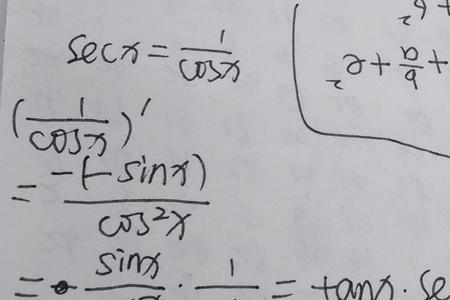 sec x = 1/cos x
(1/cos x)'
= -(-sin x)/cos²x
= sin x/ · 1/ = tan x · se